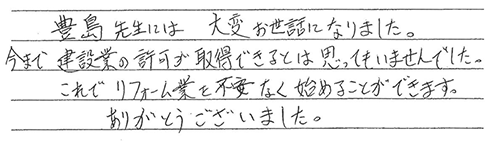 豊島先生には 大変お世話になりました。
今まで 建設業の許可が取得できるとは思ってもいませんでした。
これで リフォーム業を不安なく始めることができます。
ありがとうございました。